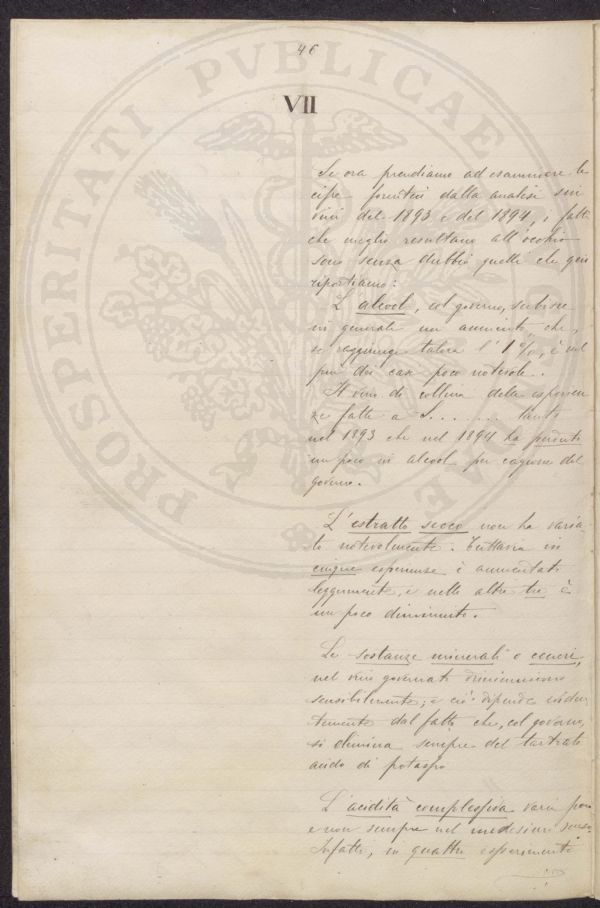 46
PROSPERITATI PVBLICAE
VII
Se ora prendiamo ad esaminare le
cifre forniteci dalla analisi sui
vini del 1893 e del 1894, i fatti
che meglio resultano all'occhio
sono senza dubbio quelli che qui
riportiamo:
L'alcool, col governo, subisce
in generale un aumento che,
se raggiunge talora l'1%, è nel
più dei casi poco notevole.
Il vino di collina delle esperien
ze fatte a S....... tanto
nel 1893 che nel 1894 ha perduto
un poco in alcool per cagione del
governo.
L'estratto secco non ha varia
to notevolmente. Tuttavia in
cinque esperienze è aumentato
leggermente, e nelle altre tre è
un poco diminuito.
Le sostanze minerali o ceneri,
nel vino governato diminuiscono
sensibilmente; e ciò dipende eviden
temente dal fatto che, col governo,
si elimina sempre del tartrato
acido di potassio
L'acidità complessiva varia poco
e non sempre nel medesimo senso.
Infatti, in quattro esperimenti